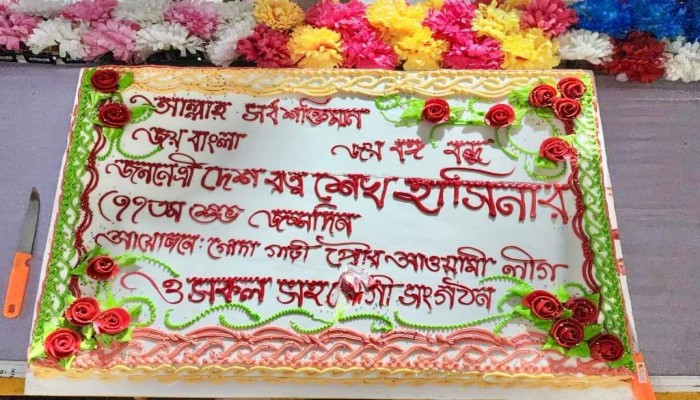 আল্লাহ সর্বশক্তিমান
জয় বাংলা জয় বঙ্গ বন্ধু
জননেত্রী দেশ রত্ন শেখ হাসিনার
৭৭তম শুভ জন্মদিন
আয়োজনে: গোদা গাড়ী পৌর আওয়ামী লীগ
ও সকল সহযোগী সংগঠন